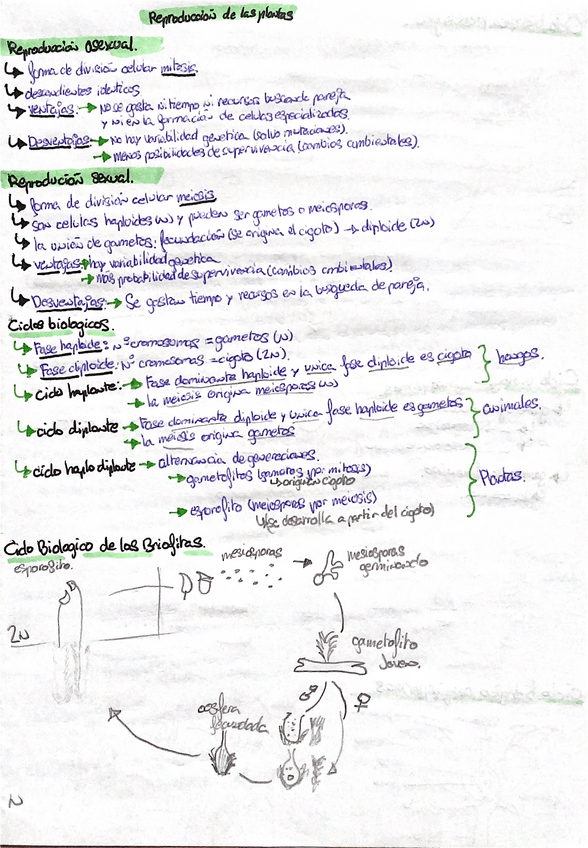 Reproduccion de las plantas
Reproduccion asexual.
forma de división celular mitosis.
descendientes identicos
ventajas: → No se gasta ni tiempo ni recursos buscando pareja
y ni en la formacion de celulas especializadas.
Desventajas → No hay variabilidad genetica (salvo mutaciones).
→ menos posibilidades de supervivencia (cambios ambientales).
Reproducion sexual.
forma de division celular meiosis
son celulas haploides (n) y pueden ser gametos o meiosporas.
la union de gametos: fecundacion (se origina el cigoto) → diploide (2n)
ventajas: → hay variabilidad genetica
→ más probabilidad de supervivencia (cambios ambientales)
Desventajas: → Se gastan tiempo y recursos en la busqueda de pareja.
Ciclos biologicos.
Fase haploide: Nº cromosomas = gametos (n)
Fase diploide: Nº cromosomas = cigoto (2n).
ciclo haplonte: → Fase dominante haploide y unica fase diploide es cigoto } hongos.
→ la meiosis origina meiosporas (n)
ciclo diplonte → Fase dominante diploide y unica fase haploide es gametos } animales.
→ la meiosis origina gametos
ciclo haplo diplonte → alternancia de generaciones.
→ gametofitos (gametos por mitosis)
↳ originan cigoto
} Plantas.
→ esporofito (meiosporas por meiosis)
↳ (se desarrolla a partir del cigoto)
Ciclo Biologico de los Briofitas.
esporofito.
meiosporas
mesiosporas
germinando
2N
gametofito
Joven.
♂ ♀
oosfera
fecundada
N